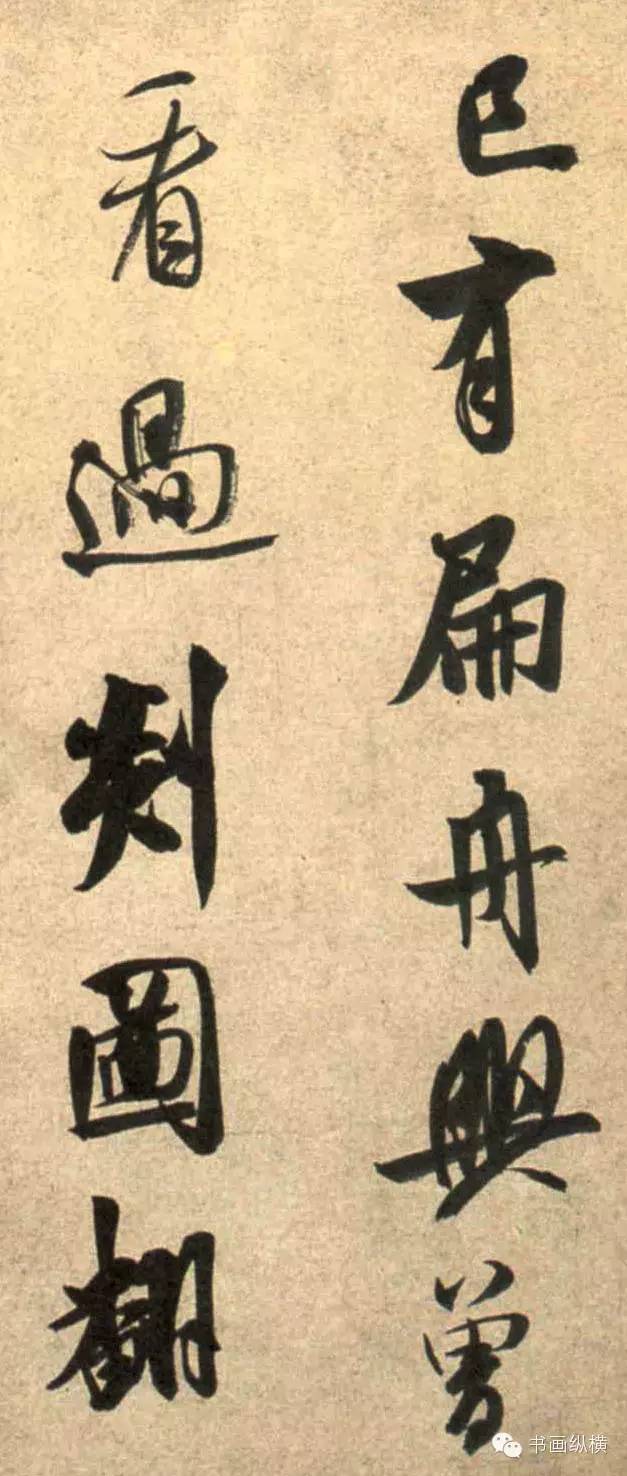 已有扁舟興曾
看過剡圖翻
书画纵横